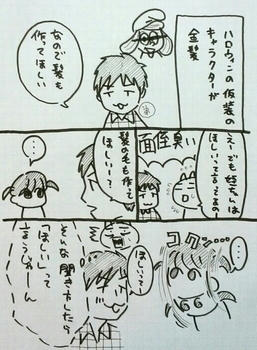 ハロウィンの仮装の
キャラクターが
金髪
なので髪も
作ってほしい
えー、でも姪ちゃんは
ほしいって言ってるの
面倒臭い
髪の毛も作って
ほしいー？
…
…
コクン…
ほしいって！
そんな聞き方したら
「ほしい」って
言うじゃーん